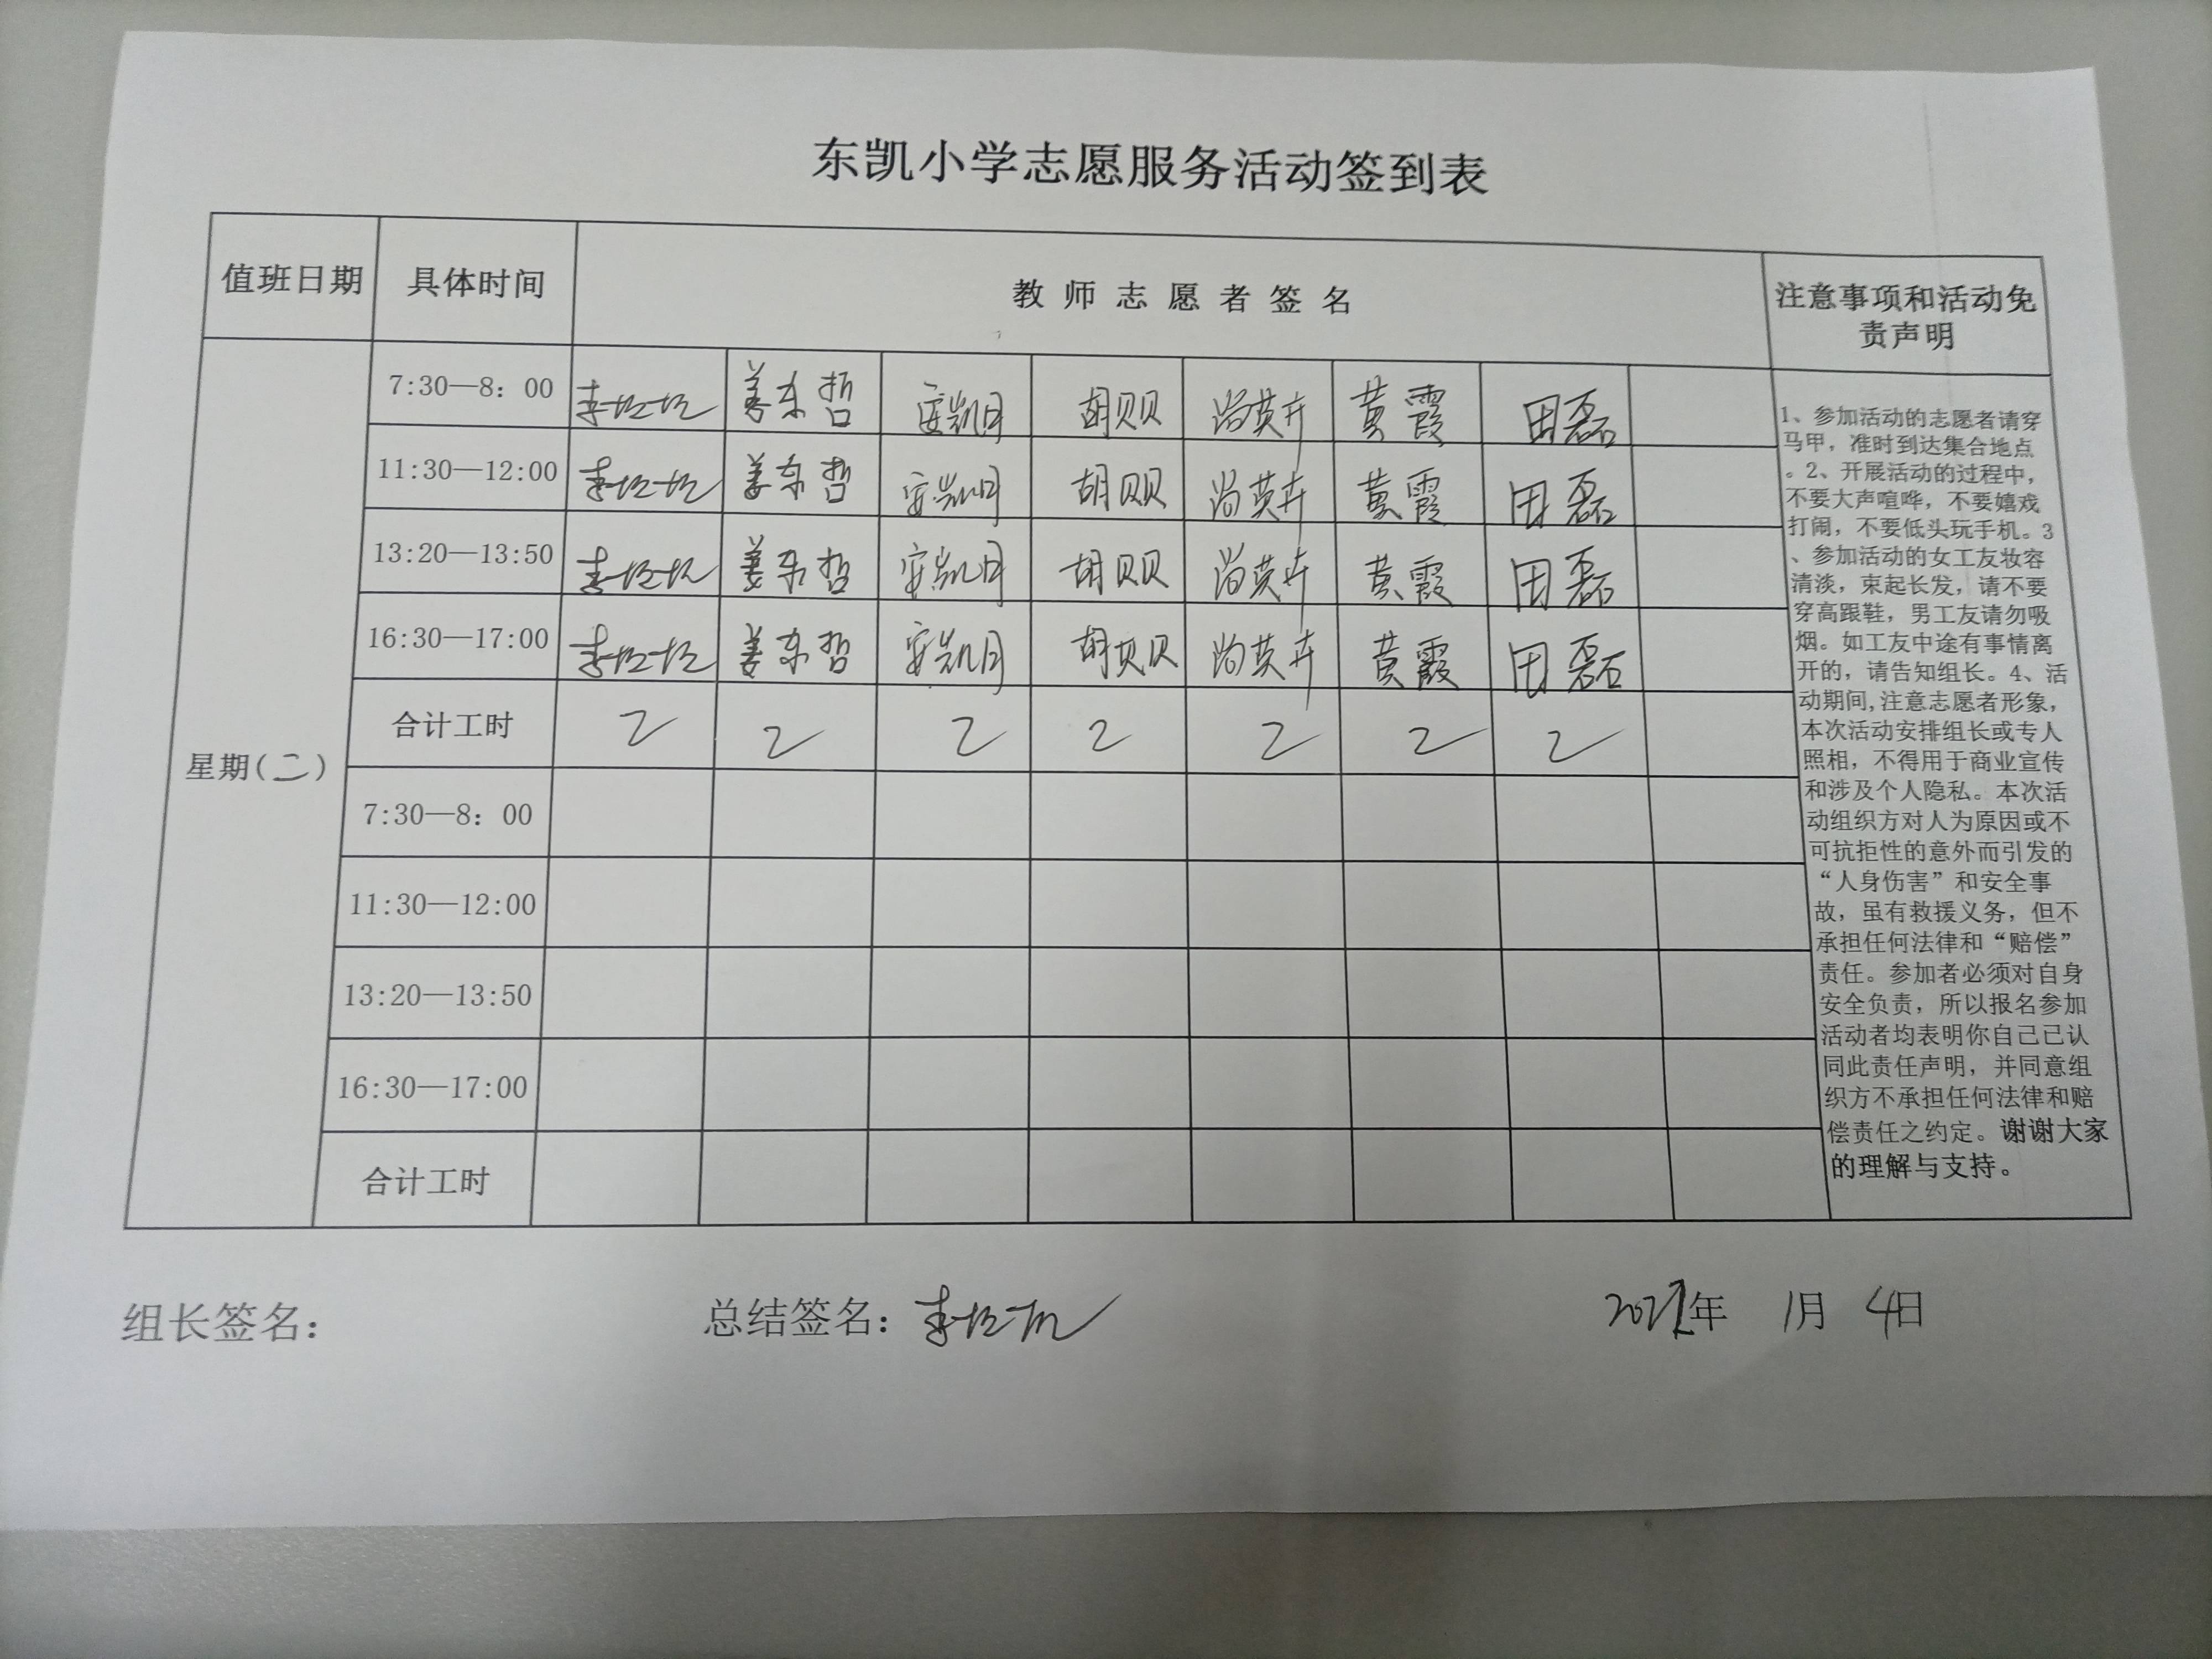 东凯小学志愿服务活动签到表
值班日期 具体时间 教师志愿者签名 注意事项和活动免
责声明
7:30—8：00 姜东哲 安凯月 胡贝贝 尚英卉 黄霞 田磊
11:30—12:00 姜东哲 安凯月 胡贝贝 尚英卉 黄霞 田磊
13:20—13:50 姜东哲 安凯月 胡贝贝 尚英卉 黄霞 田磊
16:30—17:00 姜东哲 安凯月 胡贝贝 尚英卉 黄霞 田磊
合计工时 2 2 2 2 2 2 2
星期(二)
7:30—8：00
11:30—12:00
13:20—13:50
16:30—17:00
合计工时
1、参加活动的志愿者请穿
马甲，准时到达集合地点
。2、开展活动的过程中，
不要大声喧哗，不要嬉戏
打闹，不要低头玩手机。3
、参加活动的女工友妆容
清淡，束起长发，请不要
穿高跟鞋，男工友请勿吸
烟。如工友中途有事情离
开的，请告知组长。4、活
动期间,注意志愿者形象，
本次活动安排组长或专人
照相，不得用于商业宣传
和涉及个人隐私。本次活
动组织方对人为原因或不
可抗拒性的意外而引发的
“人身伤害”和安全事
故，虽有救援义务，但不
承担任何法律和“赔偿”
责任。参加者必须对自身
安全负责，所以报名参加
活动者均表明你自己已认
同此责任声明，并同意组
织方不承担任何法律和赔
偿责任之约定。谢谢大家
的理解与支持。
组长签名： 总结签名： 2022年 1月 4日